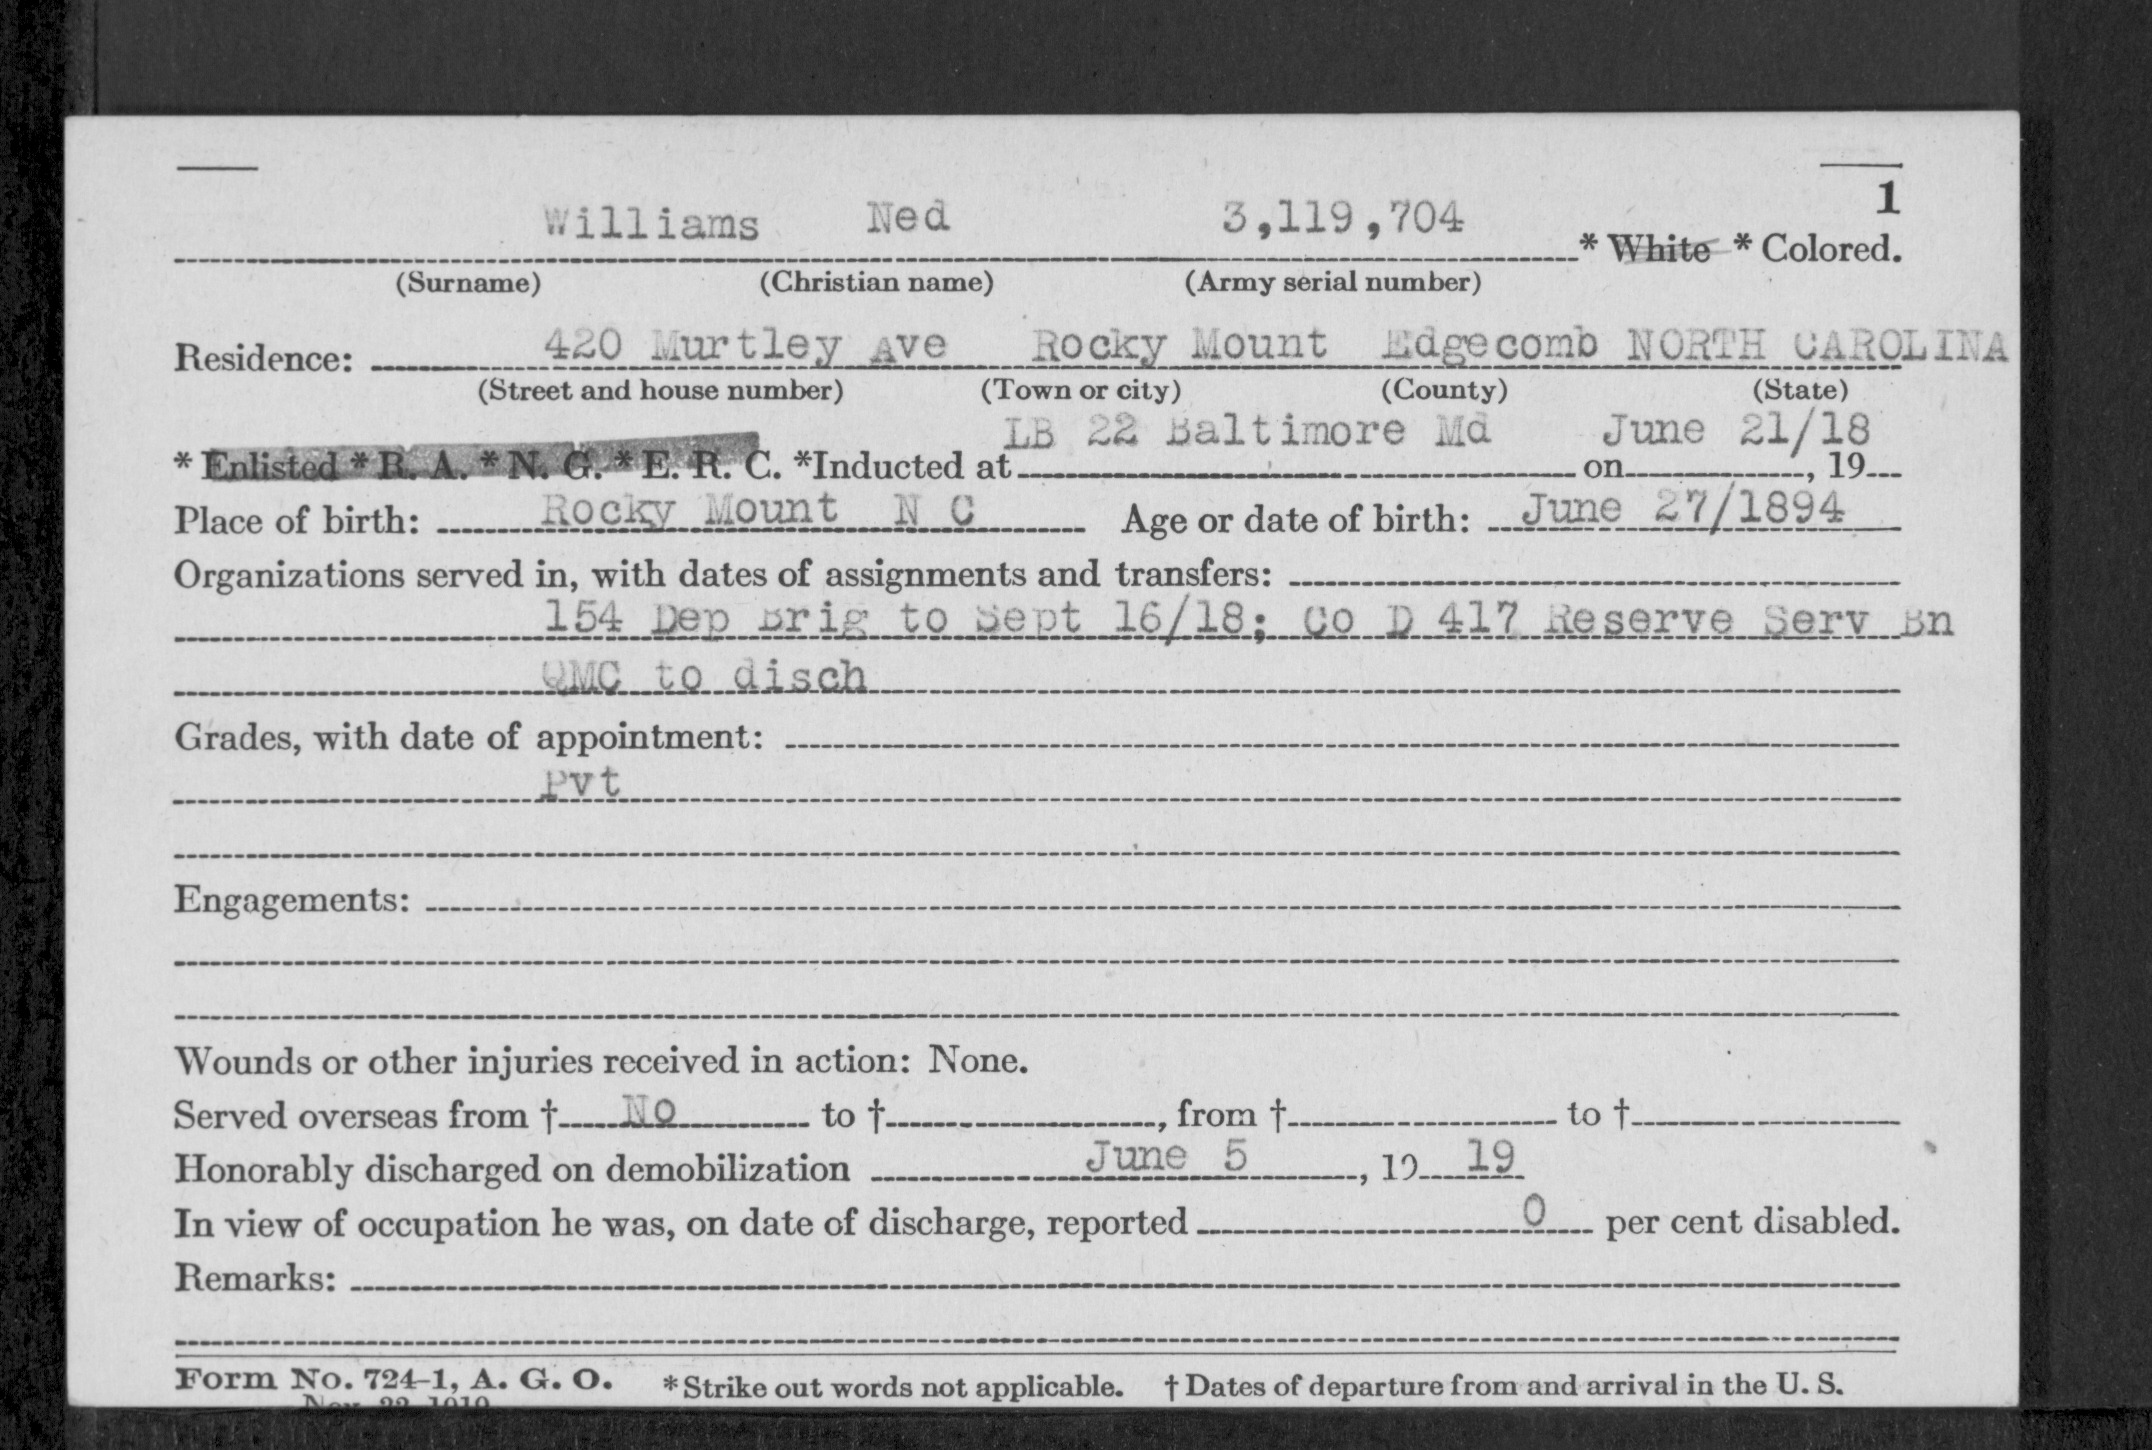 1
Williams Ned 3,119,704 * White * Colored.
(Surname) (Christian name) (Army serial number)
Residence: 420 Murtley Ave Rocky Mount Edgecomb NORTH CAROLINA
(Street and house number) (Town or city) (County) (State)
* Enlisted * R. A. * N. G. * E. R. C. *Inducted at LB 22 Baltimore Md on June 21/18, 19
Place of birth: Rocky Mount N C Age or date of birth: June 27/1894
Organizations served in, with dates of assignments and transfers:
154 Dep Brig to Sept 16/18; Co D 417 Reserve Serv Bn
QMC to disch
Grades, with date of appointment:
Pvt
Engagements:
Wounds or other injuries received in action: None.
Served overseas from † No to †, from † to †
Honorably discharged on demobilization June 5, 19 19
In view of occupation he was, on date of discharge, reported 0 per cent disabled.
Remarks:
Form No. 724-1, A. G. O. *Strike out words not applicable. † Dates of departure from and arrival in the U. S.
Nov. 22, 1919